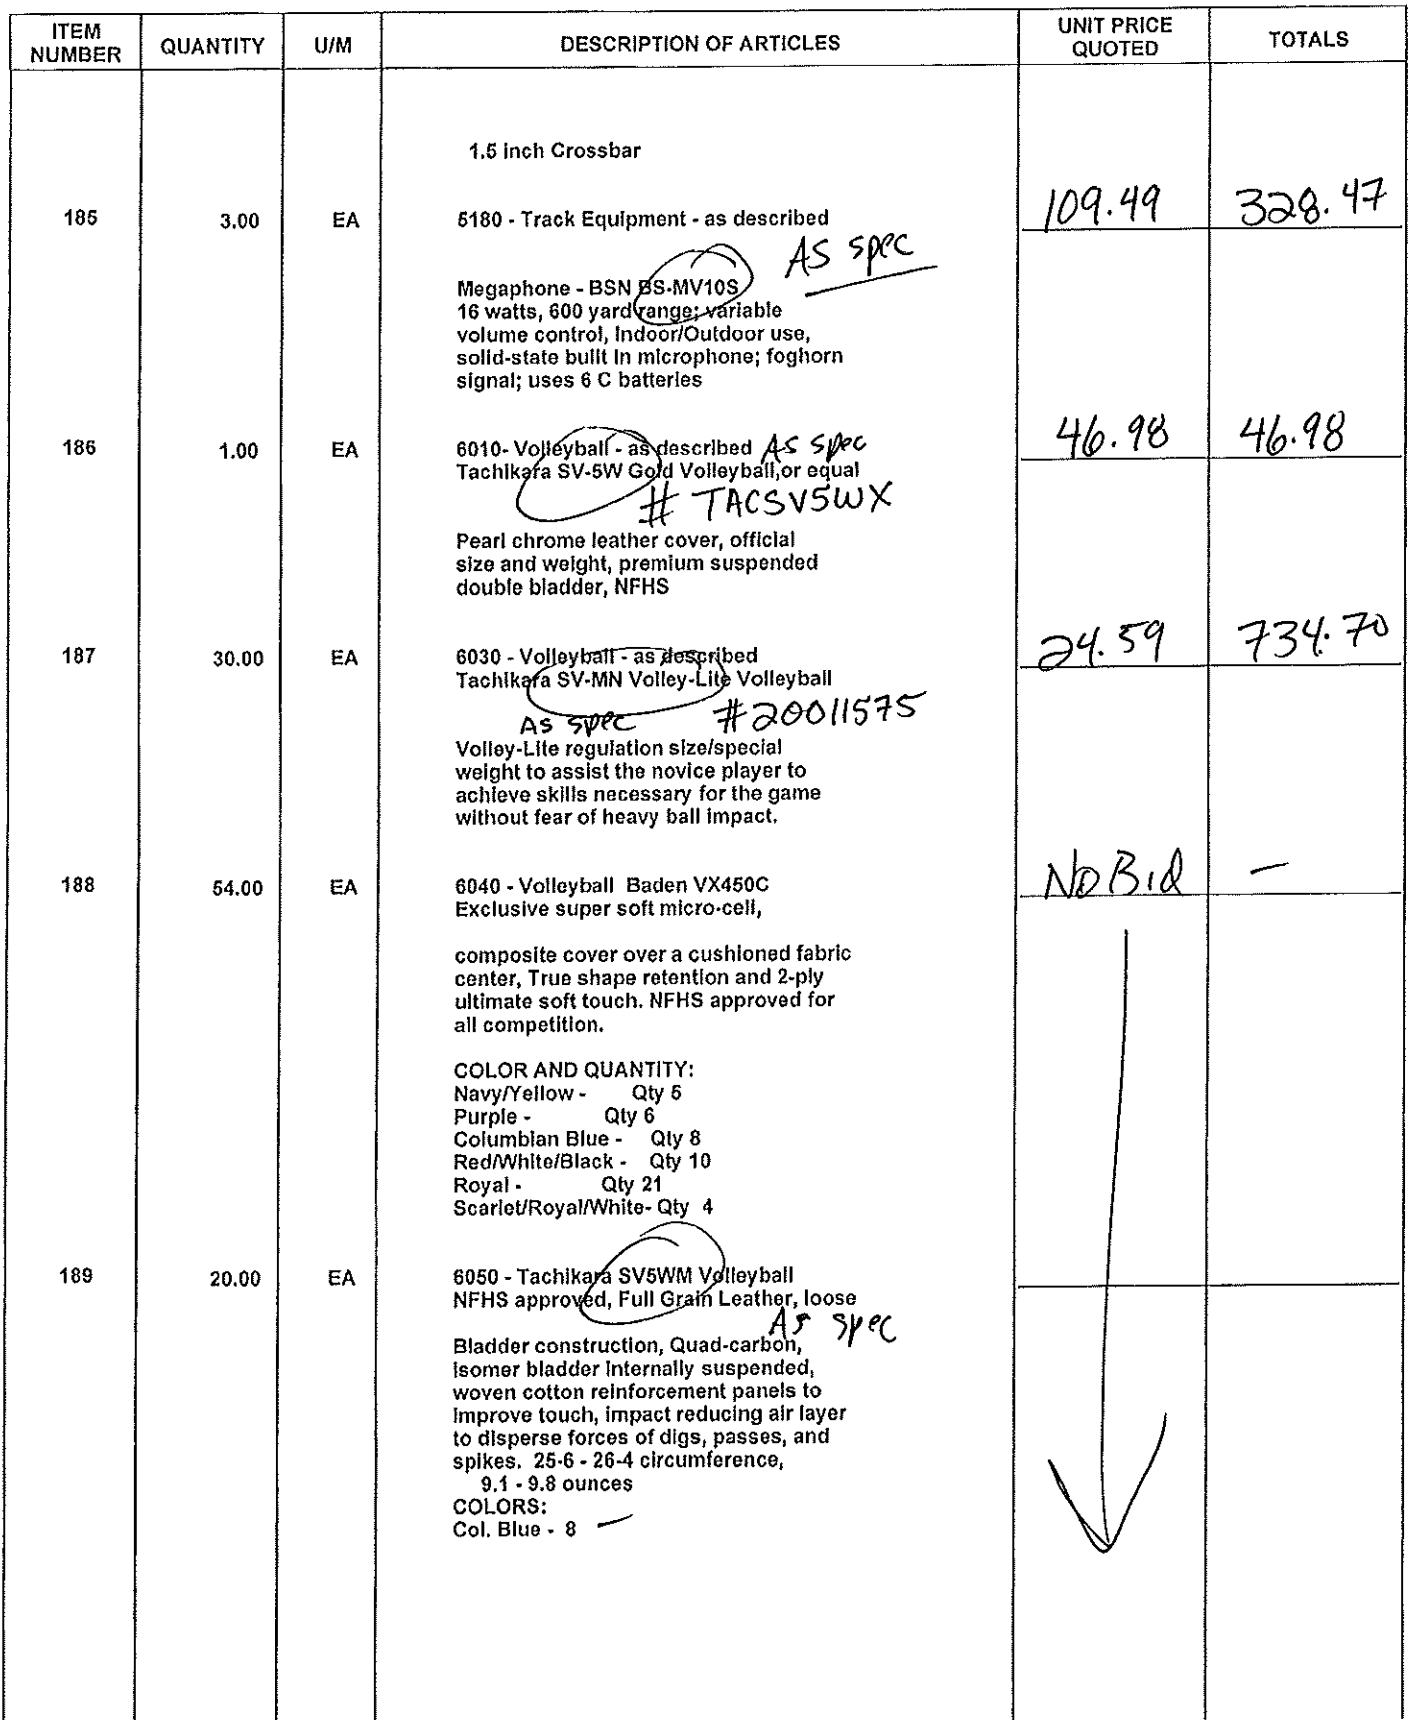 ITEM NUMBER QUANTITY U/M DESCRIPTION OF ARTICLES UNIT PRICE QUOTED TOTALS
1.5 inch Crossbar
185 3.00 EA 5180 - Track Equipment - as described 109.49 328.47
AS spec
Megaphone - BSN BS-MV10S
16 watts, 600 yard range; variable
volume control, Indoor/Outdoor use,
solid-state built in microphone; foghorn
signal; uses 6 C batteries
186 1.00 EA 6010- Volleyball - as described As spec 46.98 46.98
Tachikara SV-5W Gold Volleyball,or equal
# TACSV5WX
Pearl chrome leather cover, official
size and weight, premium suspended
double bladder, NFHS
187 30.00 EA 6030 - Volleyball - as described 24.59 734.70
Tachikara SV-MN Volley-Lite Volleyball
As spec #20011575
Volley-Lite regulation size/special
weight to assist the novice player to
achieve skills necessary for the game
without fear of heavy ball impact.
188 54.00 EA 6040 - Volleyball Baden VX450C No Bid —
Exclusive super soft micro-cell,
composite cover over a cushioned fabric
center, True shape retention and 2-ply
ultimate soft touch. NFHS approved for
all competition.
COLOR AND QUANTITY:
Navy/Yellow - Qty 5
Purple - Qty 6
Columbian Blue - Qty 8
Red/White/Black - Qty 10
Royal - Qty 21
Scarlet/Royal/White- Qty 4
189 20.00 EA 6050 - Tachikara SV5WM Volleyball
NFHS approved, Full Grain Leather, loose
As spec
Bladder construction, Quad-carbon,
Isomer bladder internally suspended,
woven cotton reinforcement panels to
improve touch, impact reducing air layer
to disperse forces of digs, passes, and
spikes. 25-6 - 26-4 circumference,
9.1 - 9.8 ounces
COLORS:
Col. Blue - 8 —